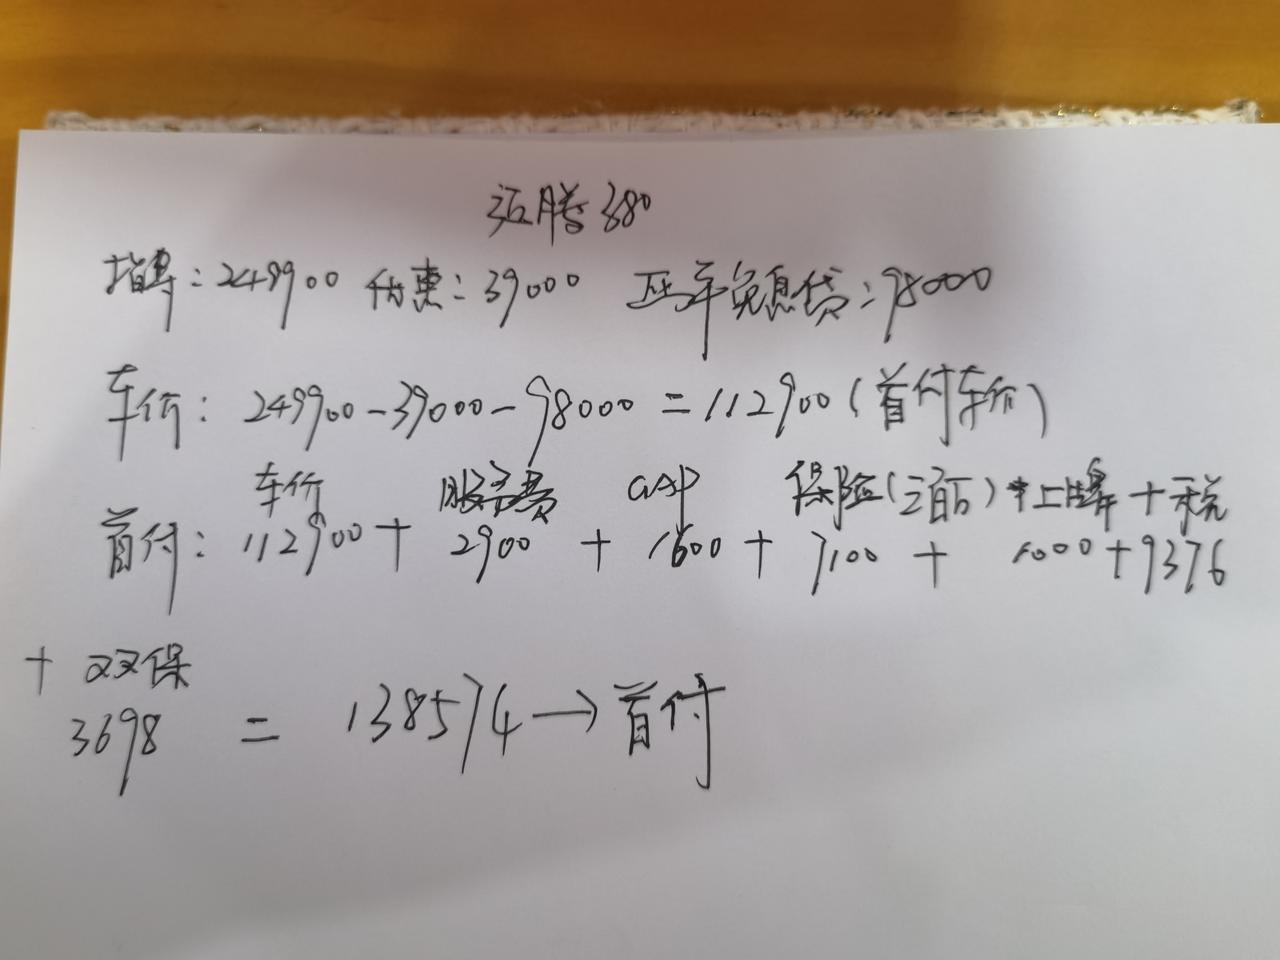 迈腾380
指导：249900 优惠：39000 两年免息贷：98000
车价：249900-39000-98000=112900（首付车价）
车价 服务费 GAP 保险（三百万）+上牌+税
首付：112900+2900+1600+7100+1000+9376
+双保
3698=138574→首付